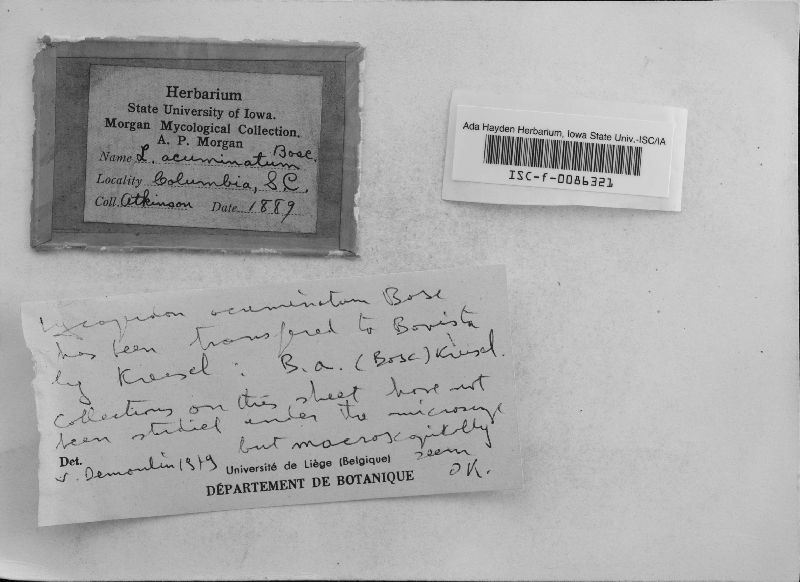 Herbarium
State University of Iowa.
Morgan Mycological Collection.
A. P. Morgan
Name L. acuminatum Bosc.
Locality Columbia, S.C.
Coll. Atkinson Date 1889
Ada Hayden Herbarium, Iowa State Univ.-ISC/IA
ISC-f-0086321
Lycoperdon acuminatum Bosc
has been transfered to Bovista
by Kreisel : B.a. (Bosc) Kreisel.
Collections on this sheet have not
been studied under the microscope
but macroscopically
seem
OK.
Det.
V. Demoulin 1979 Université de Liège (Belgique)
DÉPARTEMENT DE BOTANIQUE